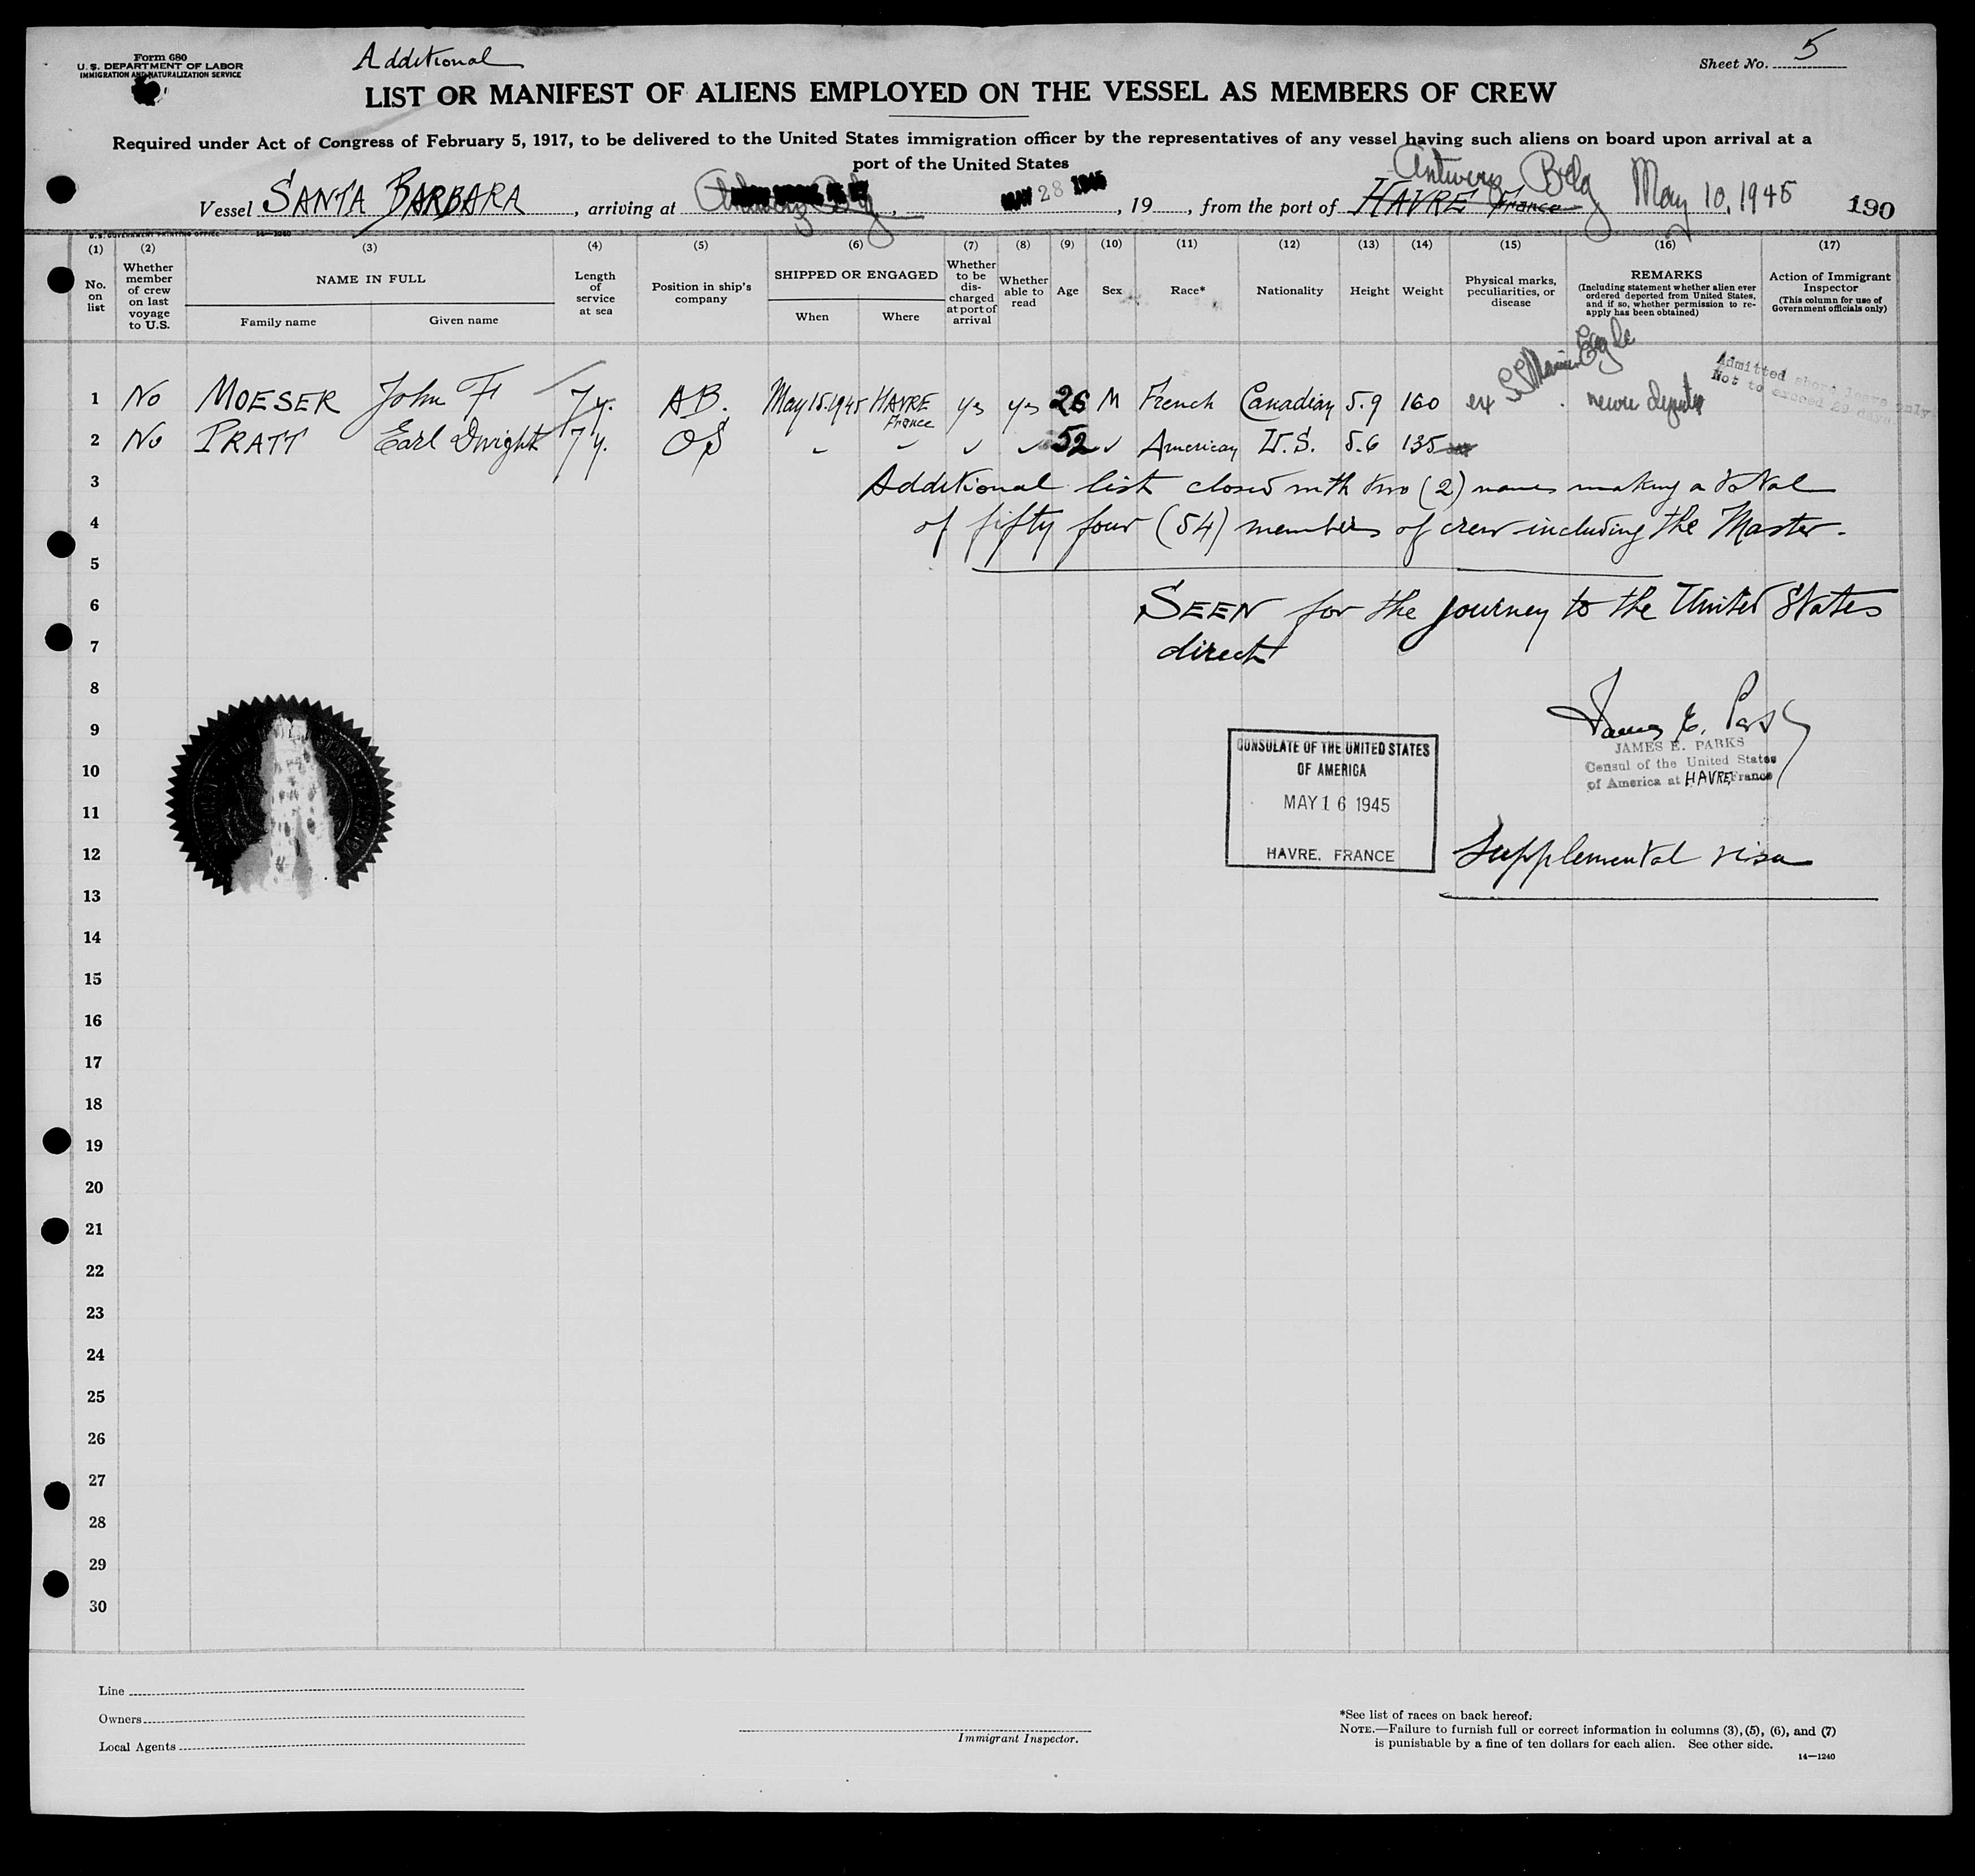 Form 680
U. S. DEPARTMENT OF LABOR
IMMIGRATION AND NATURALIZATION SERVICE
Additional
Sheet No. 5
LIST OR MANIFEST OF ALIENS EMPLOYED ON THE VESSEL AS MEMBERS OF CREW
Required under Act of Congress of February 5, 1917, to be delivered to the United States immigration officer by the representatives of any vessel having such aliens on board upon arrival at a
port of the United States
Antwerp Belg
Vessel SANTA BARBARA, arriving at , MAY 28 1945, 19, from the port of HAVRE France May 10, 1945 190
U. S. GOVERNMENT PRINTING OFFICE 14—1240
(1) (2) (3) (4) (5) (6) (7) (8) (9) (10) (11) (12) (13) (14) (15) (16) (17)
No. on list
Whether member of crew on last voyage to U.S.
NAME IN FULL
Family name
Given name
Length of service at sea
Position in ship's company
SHIPPED OR ENGAGED
When
Where
Whether to be discharged at port of arrival
Whether able to read
Age
Sex
Race*
Nationality
Height
Weight
Physical marks, peculiarities, or disease
REMARKS
(Including statement whether alien ever ordered deported from United States, and if so, whether permission to re-apply has been obtained)
Action of Immigrant Inspector
(This column for use of Government officials only)
1 No MOESER John F 7 y. AB. May 15.1945 HAVRE France yes yes 26 M French Canadian 5.9 160 ex SS Eagle never
Admitted shore leave only
Not to exceed 29 days
2 No PRATT Earl Dwight 7 y. OS 52 American U.S. 5.6 135
3 Additional list closed with two (2) names making a total
4 of fifty four (54) members of crew including the Master.
5
6 SEEN for the journey to the United States
7 direct
8
9
James E. Parks
JAMES E. PARKS
Consul of the United States
of America at HAVRE, France
CONSULATE OF THE UNITED STATES
OF AMERICA
MAY 16 1945
HAVRE, FRANCE
10
11
12 Supplemental visa
13
14
15
16
17
18
19
20
21
22
23
24
25
26
27
28
29
30
Line
Owners
Local Agents
Immigrant Inspector.
*See list of races on back hereof.
NOTE.—Failure to furnish full or correct information in columns (3), (5), (6), and (7)
is punishable by a fine of ten dollars for each alien. See other side.
14—1240